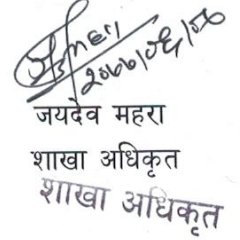 २०७७/०६/०८
जयदेव महरा
शाखा अधिकृत
शाखा अधिकृत